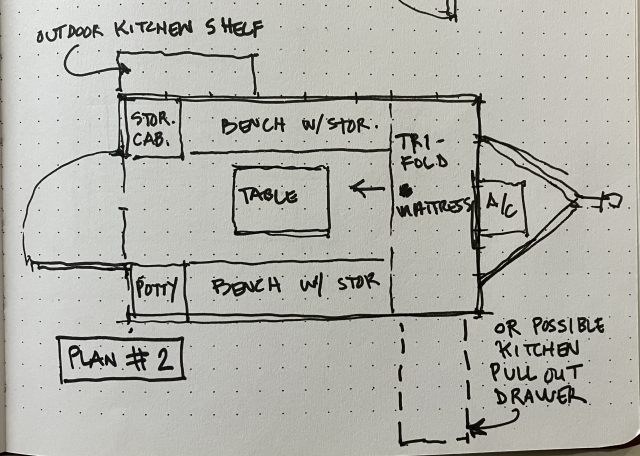 OUTDOOR KITCHEN SHELF
STOR.
CAB.
BENCH W/ STOR.
TRI-
FOLD
MATTRESS
TABLE
A/C
POTTY
BENCH W/ STOR
PLAN #2
OR POSSIBLE
KITCHEN
PULL OUT
DRAWER